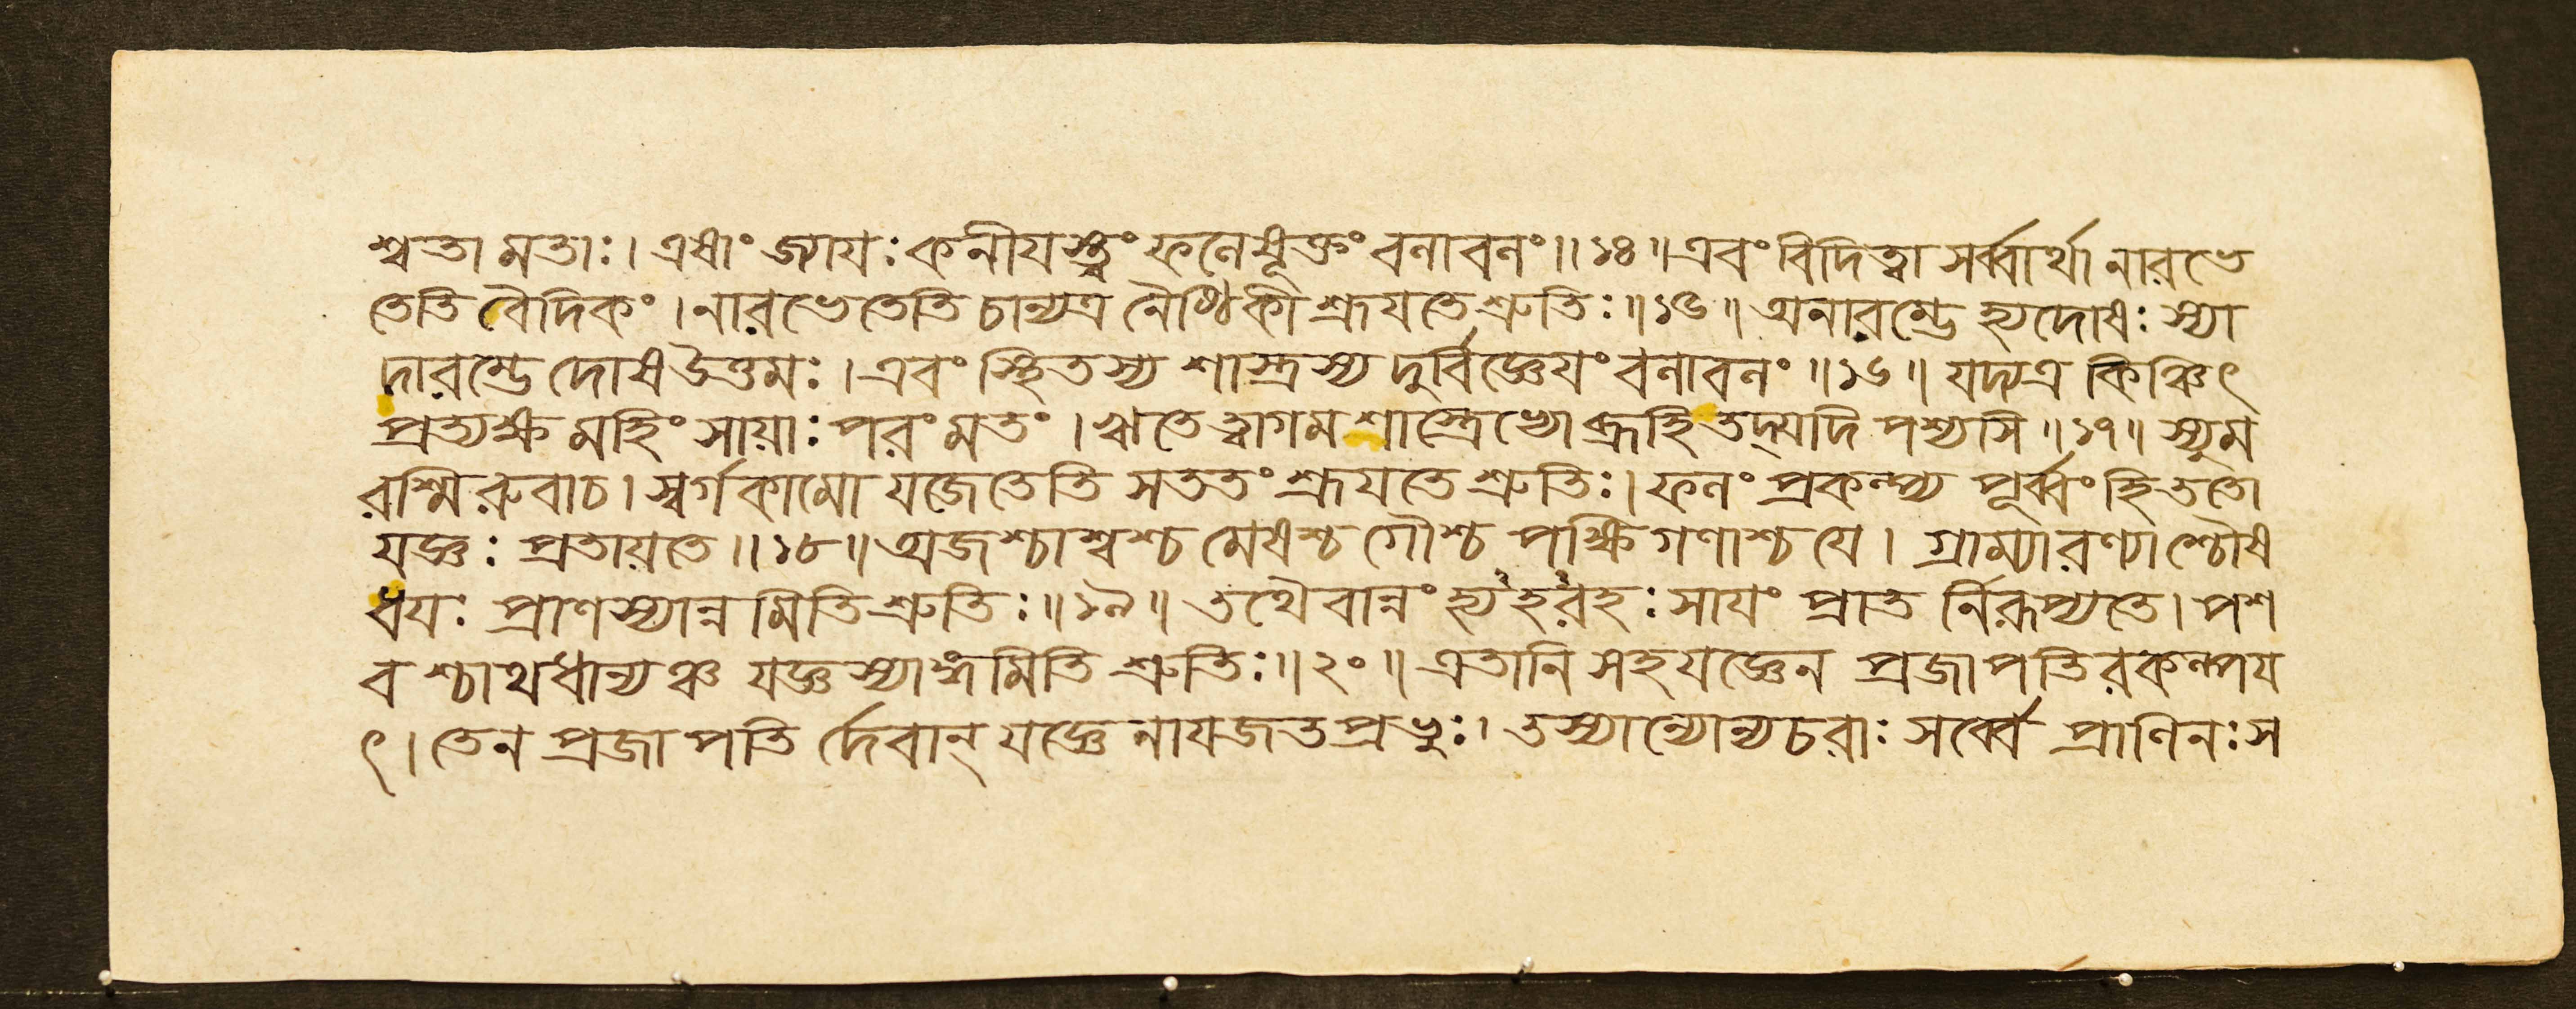 শ্বতা মতাঃ। এষাং জ্যাযঃ কনীযস্ত্বং ফলেষূক্তং বলাবলং॥১৪॥এবং বিদিত্বা সর্ব্বার্থা নারভে
তেতি বৈদিকং।নারভেতেতি চান্যত্র নৈষ্ঠিকী শ্রূযতে শ্রুতিঃ॥১৫॥ অনারম্ভে হ্যদোষঃ স্যা
দারম্ভে দোষউত্তমঃ।এবং স্থিতস্য শাস্ত্রস্য দুর্বিজ্ঞেযং বলাবলং॥১৬॥ যদ্যত্র কিঞ্চিৎ
প্রত্যক্ষ মহিংসায়াঃ পরং মতং।ঋতে ত্বাগম শাস্ত্রেভ্যো ব্রূহি তদ্যদি পশ্যসি॥১৭॥ স্যুম
রশ্মি রুবাচ। স্বর্গকামো যজেতেতি সততং শ্রূযতে শ্রুতিঃ। ফলং প্রকল্প্য পূর্ব্বং হি ততো
যজ্ঞঃ প্রতায়তে॥১৮॥অজশ্চাশ্বশ্চ মেষশ্চ গৌশ্চ পক্ষিগণাশ্চ যে। গ্রাম্যারণ্যাশ্চৌষ
ধযঃ প্রাণস্যান্ন মিতি শ্রুতিঃ॥১৯॥ তথৈবান্নং হ্যহরহঃ সাযং প্রাত র্নিরূপ্যতে। পশ
ব শ্চাথ ধান্যঞ্চ যজ্ঞস্যাঙ্গমিতি শ্রুতিঃ॥২০॥ এতানি সহযজ্ঞেন প্রজাপতিরকল্পয
ৎ। তেন প্রজাপতি র্দেবান্ যজ্ঞে নাযজত প্রভুঃ। তস্যান্যোন্যচরাঃ সর্ব্বে প্রাণিনঃ স